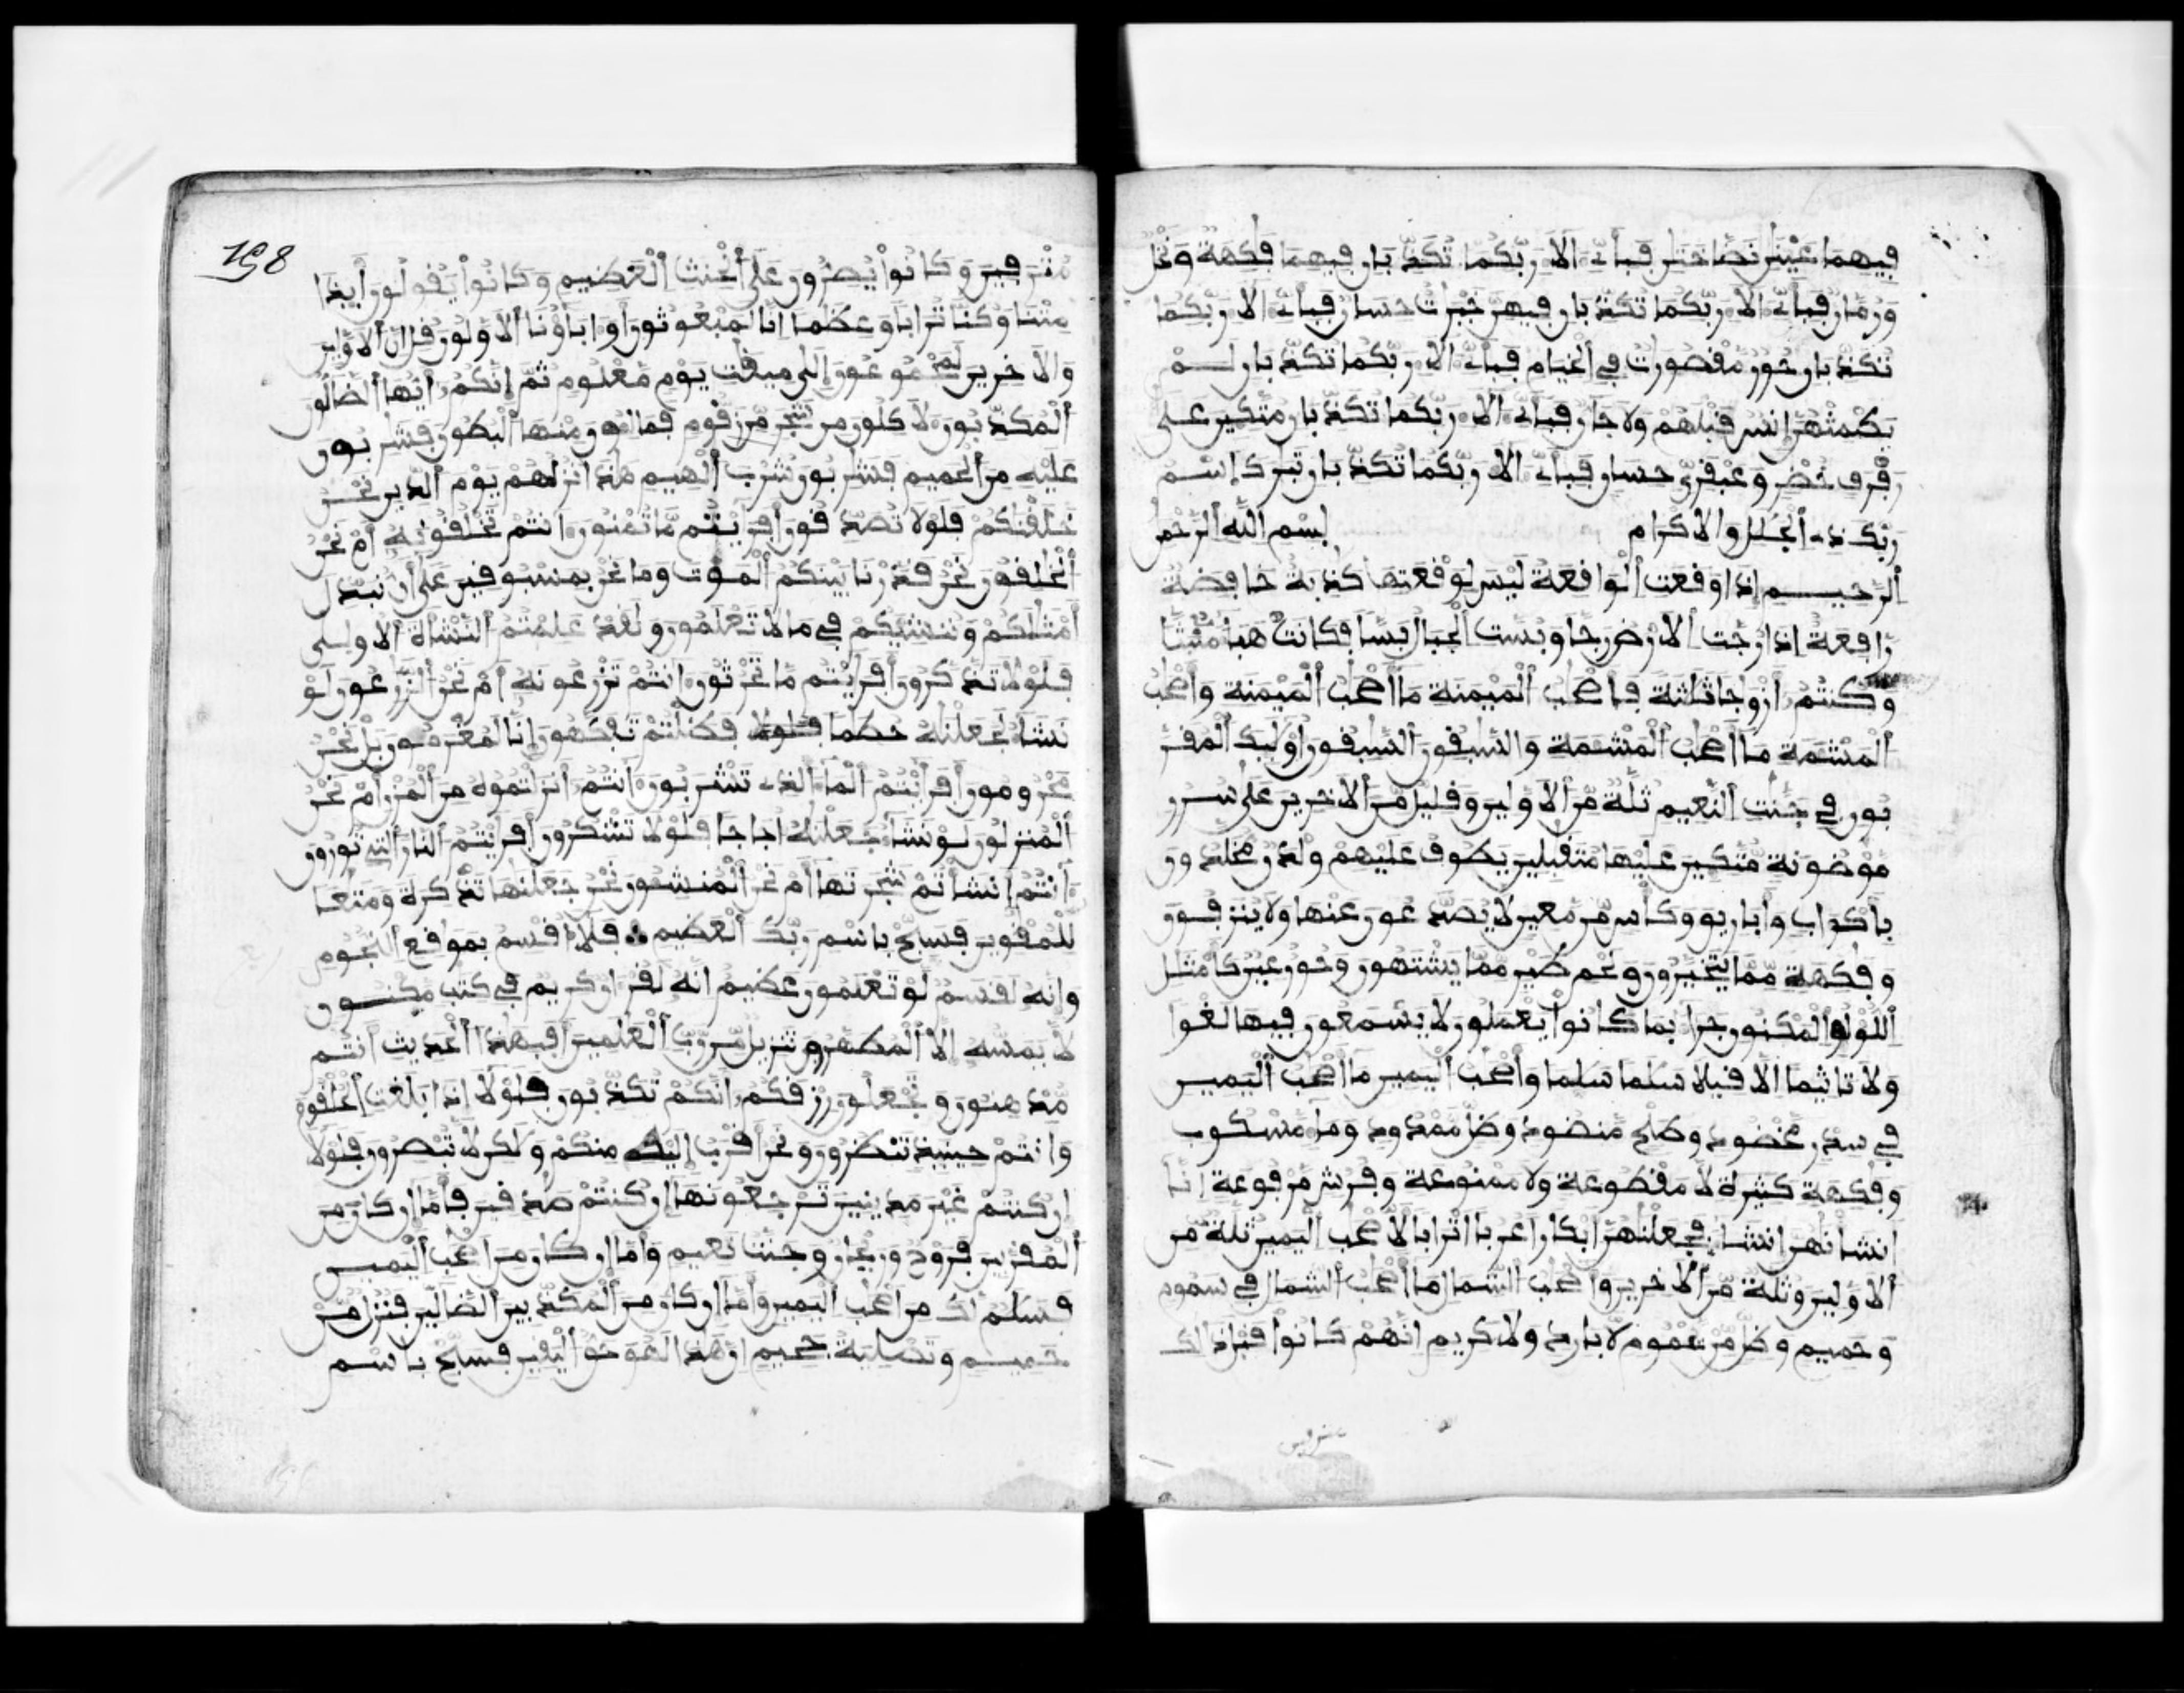 فيهما عينن نضاختن فبأي ألا ربكما تكذبان فيهما فكهة ونخل
ورمان فبأي ألا ربكما تكذبان فيهن خيرت حسان فبأي ألا ربكما
تكذبان حور مقصورت في الخيام فبأي ألا ربكما تكذبان لم
يطمثهن إنس قبلهم ولا جان فبأي ألا ربكما تكذبان متكين على
رفرف خضر وعبقري حسان فبأي ألا ربكما تكذبان تبرك إسم
ربك ذي الجلل والاكرام بسم الله الرحمن
الرحيم إذا وقعت الواقعة ليس لوقعتها كذبة خافضة
رافعة إذا رجت الارض رجا وبست الجبال بسا فكانت هبا منبثا
وكنتم أزوجا ثلثة فاصحب الميمنة ما أصحب الميمنة واصحب
المشمة ما أصحب المشمة والسبقون السبقون أوليك المقر
بون في جنت النعيم ثلة من الاولين وقليل من الاخرين على سرر
موضونة متكين عليها متقبلين يطوف عليهم ولدن مخلدون
باكواب وأباريق وكأس من معين لا يصدعون عنها ولا ينزفون
وفكهة مما يتخيرون ولحم طير مما يشتهون وحور عين كأمثل
اللؤلؤ المكنون جزا بما كانوا يعملون لا يسمعون فيها لغوا
ولا تاثيما الا قيلا سلما سلما وأصحب اليمين ما أصحب اليمين
في سدر مخضود وطلح منضود وظل ممدود وما مسكوب
وفكهة كثيرة لا مقطوعة ولا ممنوعة وفرش مرفوعة إنا
انشأنهن انشا فجعلنهن ابكارا عربا اترابا لاصحب اليمين ثلة من
الاولين وثلة من الاخرين وأصحب الشمال ما أصحب الشمال في سموم
وحميم وظل من يحموم لا بارد ولا كريم انهم كانوا قبل ذلك
198
مترفين وكانوا يصرون على الحنث العظيم وكانوا يقولون أيذا
متنا وكنا ترابا وعظما انا لمبعوثون أو اباؤنا الاولون قل ان الاولين
والاخرين لمجموعون إلى ميقت يوم معلوم ثم إنكم أيها الضالون
المكذبون لاكلون من شجر من زقوم فمالون منها البطون فشربون
عليه من الحميم فشربون شرب الهيم هذا نزلهم يوم الدين نحن
خلقنكم فلولا تصدقون أفريتم ما تمنون انتم تخلقونه أم نحن
الخلقون نحن قدرنا بينكم الموت وما نحن بمسبوقين على أن نبدل
أمثلكم وننشيكم في ما لا تعلمون ولقد علمتم النشأة الاولى
فلولا تذكرون أفريتم ما تحرثون انتم تزرعونه أم نحن الزرعون لو
نشا لجعلنه حطما فظلتم تفكهون إنا لمغرمون بل نحن
محرومون أفرأيتم الما الذي تشربون انتم أنزلتموه من المزن أم نحن
المنزلون لو نشا جعلنه اجاجا فلولا تشكرون أفريتم النار التي تورون
أنتم إنشأتم شجرتها أم نحن المنشون نحن جعلنها تذكرة ومتعا
للمقوين فسبح باسم ربك العظيم فلا اقسم بموقع النجوم
وإنه لقسم لو تعلمون عظيم انه لقران كريم في كتب مكنون
لا يمسه إلا المطهرون تنزيل من رب العلمين أفبهذا الحديث أنتم
مدهنون وتجعلون رزقكم أنكم تكذبون فلولا إذا بلغت الحلقوم
وانتم حينيذ تنظرون ونحن أقرب إليه منكم ولكن لا تبصرون فلولا
ان كنتم غير مدينين ترجعونها إن كنتم صدقين فأما إن كان من
المقربين فروح وريحان وجنت نعيم وأما إن كان من اصحب اليمين
فسلم لك من اصحب اليمين وأما إن كان من المكذبين الضالين فنزل من
حميم وتصلية جحيم إن هذا لهو حق اليقين فسبح باسم